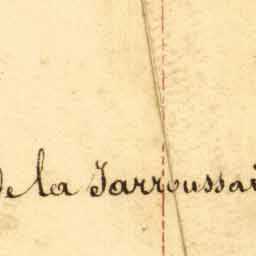 de la Jarroussai